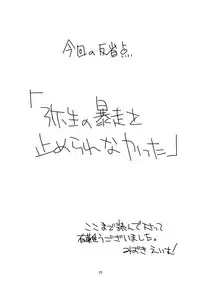 今回の反省点
「弥生の暴走を
止められなかった」
ここまで読んで下さって
有難うございました。
みずきえいむ!